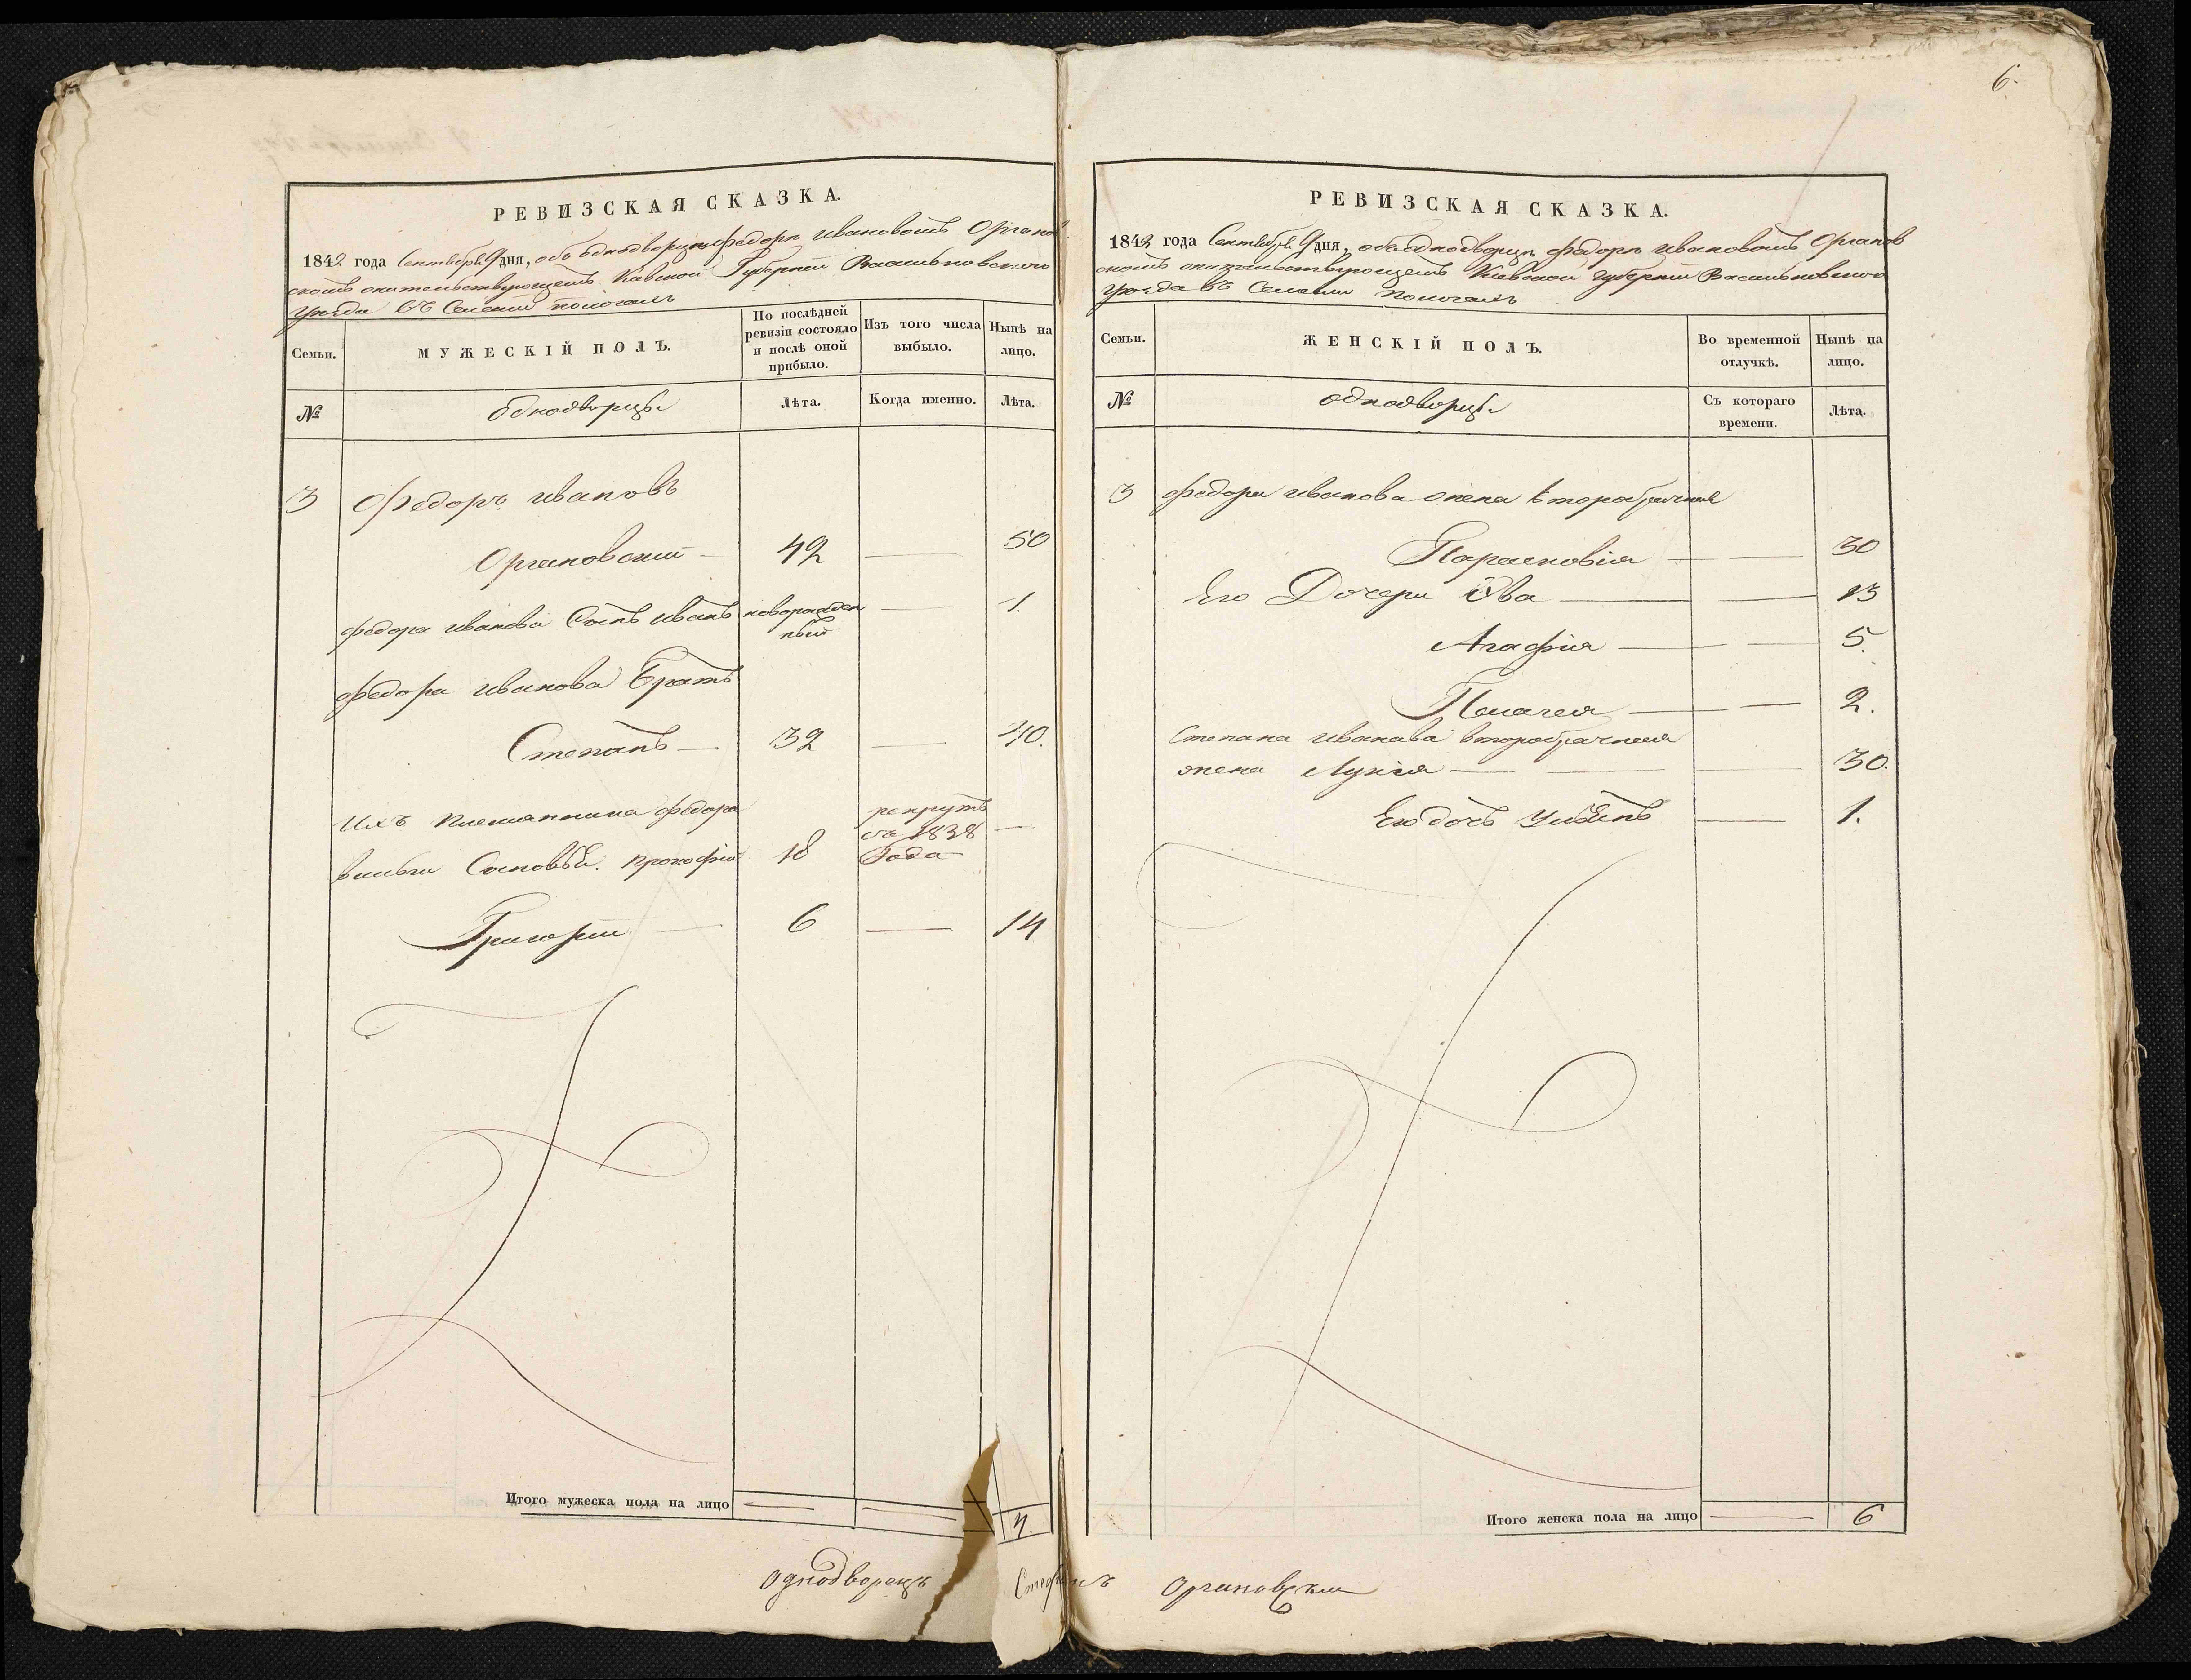 РЕВИЗСКАЯ СКАЗКА.
1842 года Сентября 9 дня, объ однодворцѣ Федорѣ Ивановомъ Органов
скомъ жительствующемъ Киевской Губернии Васильковского
уезда въ Селении Пологахъ
Семьи.
МУЖЕСКІЙ ПОЛЪ.
По послѣдней
ревизіи состояло
и послѣ оной
прибыло.
Изъ того числа
выбыло.
Нынѣ на
лицо.
№
однодворцы
Лѣта.
Когда именно.
Лѣта.
3 Федоръ Ивановъ
Органовский — 42 — 50
Федора Иванова Сынъ Иванъ новорожден — 1.
ный
Федора Иванова Братъ
Степанъ — 32 — 40.
Ихъ племянника Федора рекрутъ
съ 1838 —
Сыновья. Прокофий 18 Года
Григорий — 6 — 14
Итого мужеска пола на лицо — — 4.
6.
РЕВИЗСКАЯ СКАЗКА.
1842 года Сентября 9 дня, объ однодворцѣ Федорѣ Ивановомъ Органов
скомъ жительствующемъ Киевской Губернии Васильковского
уезда въ Селении Пологахъ
Семьи.
ЖЕНСКІЙ ПОЛЪ.
Во временной
отлучкѣ.
Нынѣ на
лицо.
№
однодворцы
Съ котораго
времени.
Лѣта.
3 Федора Иванова жена второбрачная
Парасковія — — 30
Его Дочери Ева — — 13
Агафия — — 5.
Пелагея — — 2.
Степана Иванова второбрачная
жена Лукия — — — 30.
Его дочь — 1.
Итого женска пола на лицо — 6
однодворецъ Стефанъ Органовски